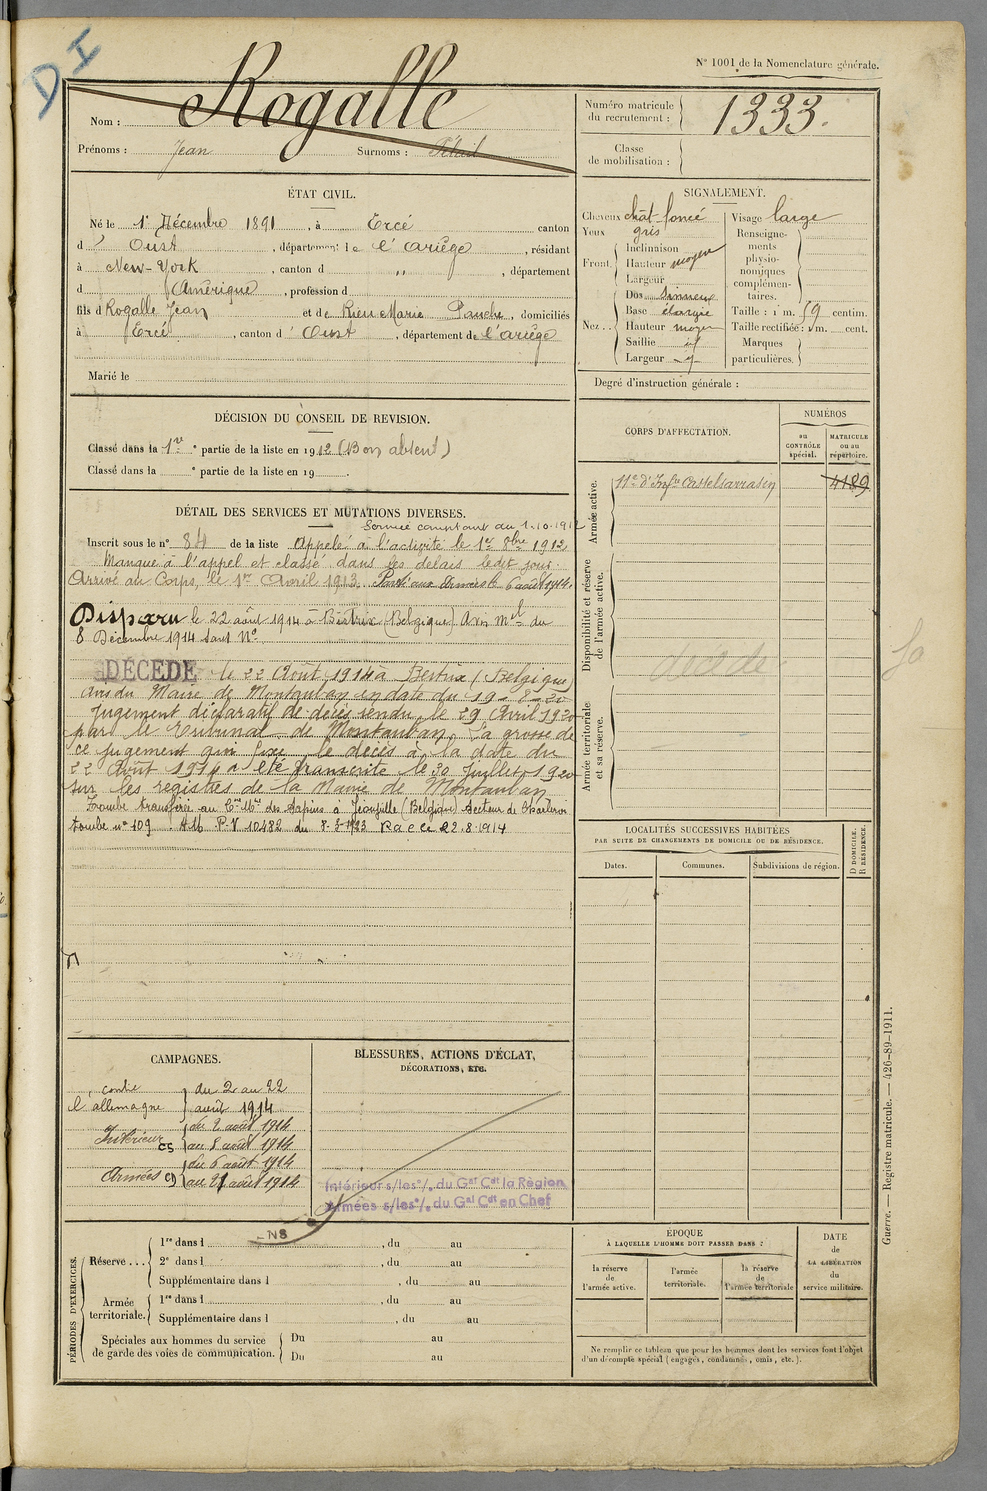 D I
N° 1001 de la Nomenclature générale.
Nom : Rogalle
Prénoms : Jean Surnoms :
Numéro matricule du recrutement : 1333.
Classe de mobilisation :
ÉTAT CIVIL.
Né le 1er Décembre 1891, à Ercé canton
d' Oust, département de l'Ariège, résidant
à New-York, canton d " , département
d' Amérique, profession d
fils d Rogalle Jean et de Rieu Marie , domiciliés
à Ercé, canton d' Oust, département de l'Ariège
Marié le
SIGNALEMENT.
Cheveux chât-foncé
Yeux gris
Front. Inclinaison
Hauteur moyen
Largeur
Nez.. Dos sinueux
Base élargie
Hauteur moyen
Saillie
Largeur
Visage large
Renseignements physionomiques complémentaires.
Taille : 1 m. 59 centim.
Taille rectifiée : 1 m. cent.
Marques particulières.
Degré d'instruction générale :
DÉCISION DU CONSEIL DE REVISION.
Classé dans la 1re partie de la liste en 1912 (Bon absent)
Classé dans la ° partie de la liste en 19
CORPS D'AFFECTATION.
NUMÉROS
au CONTRÔLE spécial.
MATRICULE ou au répertoire.
Armée active.
11e d'Infie Castelsarrasin 4189
Disponibilité et réserve de l'armée active.
Armée territoriale et sa réserve.
DÉTAIL DES SERVICES ET MUTATIONS DIVERSES.
Service comptant du 1.10.1912
Inscrit sous le n° 84 de la liste Appelé à l'activité le 1er 8bre 1912
Manque à l'appel et classé dans les délais ledit jour.
Arrivé au Corps, le 1er Avril 1913. Parti aux Armées le 6 août 1914.
Disparu le 22 août 1914 à Bertrix (Belgique) Avis Mel du
8 Décembre 1914 sans N°
DÉCÉDÉ le 22 Août 1914 à Bertrix (Belgique)
avis du Maire de Montauban en date du 19-8-20
Jugement déclaratif de décès rendu le 29 Avril 1920
par le Tribunal de Montauban. La grosse de
ce jugement qui fixe le décès à la date du
22 Août 1914 a été transcrite le 30 Juillet 1920
sur les registres de la Mairie de Montauban
Tombe transférée au Cre Mre des Sapins à (Belgique) Secteur de Charleroi
tombe n° 109 P.V 10482 du 8-8-1923 22.8.1914
LOCALITÉS SUCCESSIVES HABITÉES
PAR SUITE DE CHANGEMENTS DE DOMICILE OU DE RÉSIDENCE.
Dates. Communes. Subdivisions de région. D DOMICILE. R RÉSIDENCE.
CAMPAGNES.
contre l'allemagne du 2 au 22 août 1914
Intérieur CS du 2 août 1914 au 5 août 1914
Armées CD du 6 août 1914 au 21 août 1914
BLESSURES, ACTIONS D'ÉCLAT,
DÉCORATIONS, ETC.
Intérieur s/les °/. du Gal Cdt la Région
Armées s/les °/. du Gal Cdt en Chef
PÉRIODES D'EXERCICES.
Réserve... 1re dans l , du au
2e dans l , du au
Supplémentaire dans l , du au
Armée territoriale. 1re dans l , du au
Supplémentaire dans l , du au
Spéciales aux hommes du service de garde des voies de communication. Du au
Du au
ÉPOQUE
À LAQUELLE L'HOMME DOIT PASSER DANS :
la réserve de l'armée active.
l'armée territoriale.
la réserve de l'armée territoriale
DATE de LA LIBÉRATION du service militaire.
Ne remplir ce tableau que pour les hommes dont les services font l'objet
d'un décompte spécial (engagés, condamnés, omis, etc.).
Guerre. — Registre matricule. — 426-89-1911.